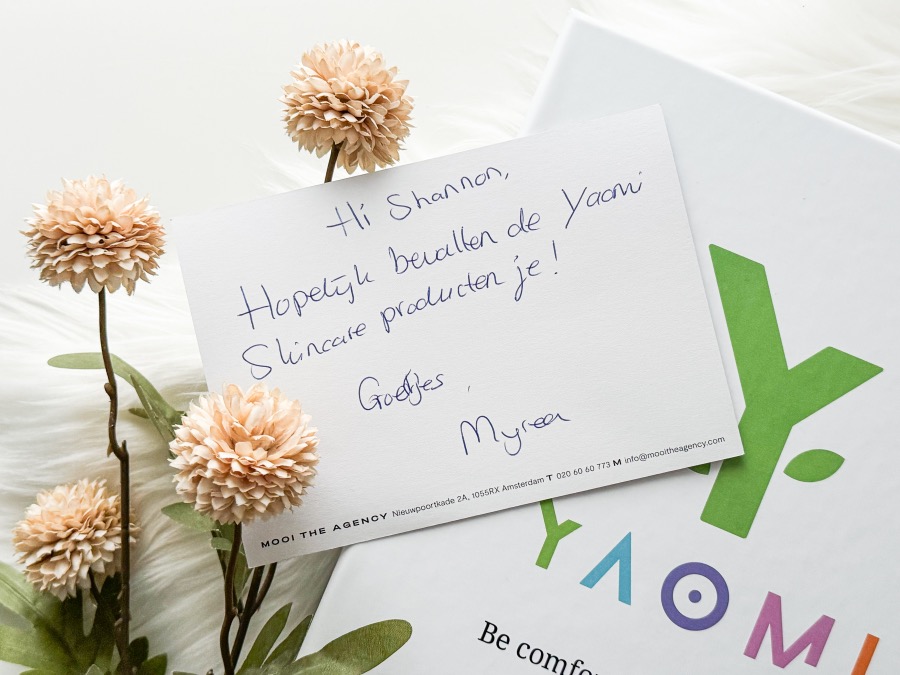 Hi Shannon,
Hopelijk bevallen de Yaomi
Skincare producten je!
Groetjes,
Myrea
MOOI THE AGENCY Nieuwpoortkade 2A, 1055RX Amsterdam T 020 60 60 773 M info@mooitheagency.com
YAOMI
Be comfo